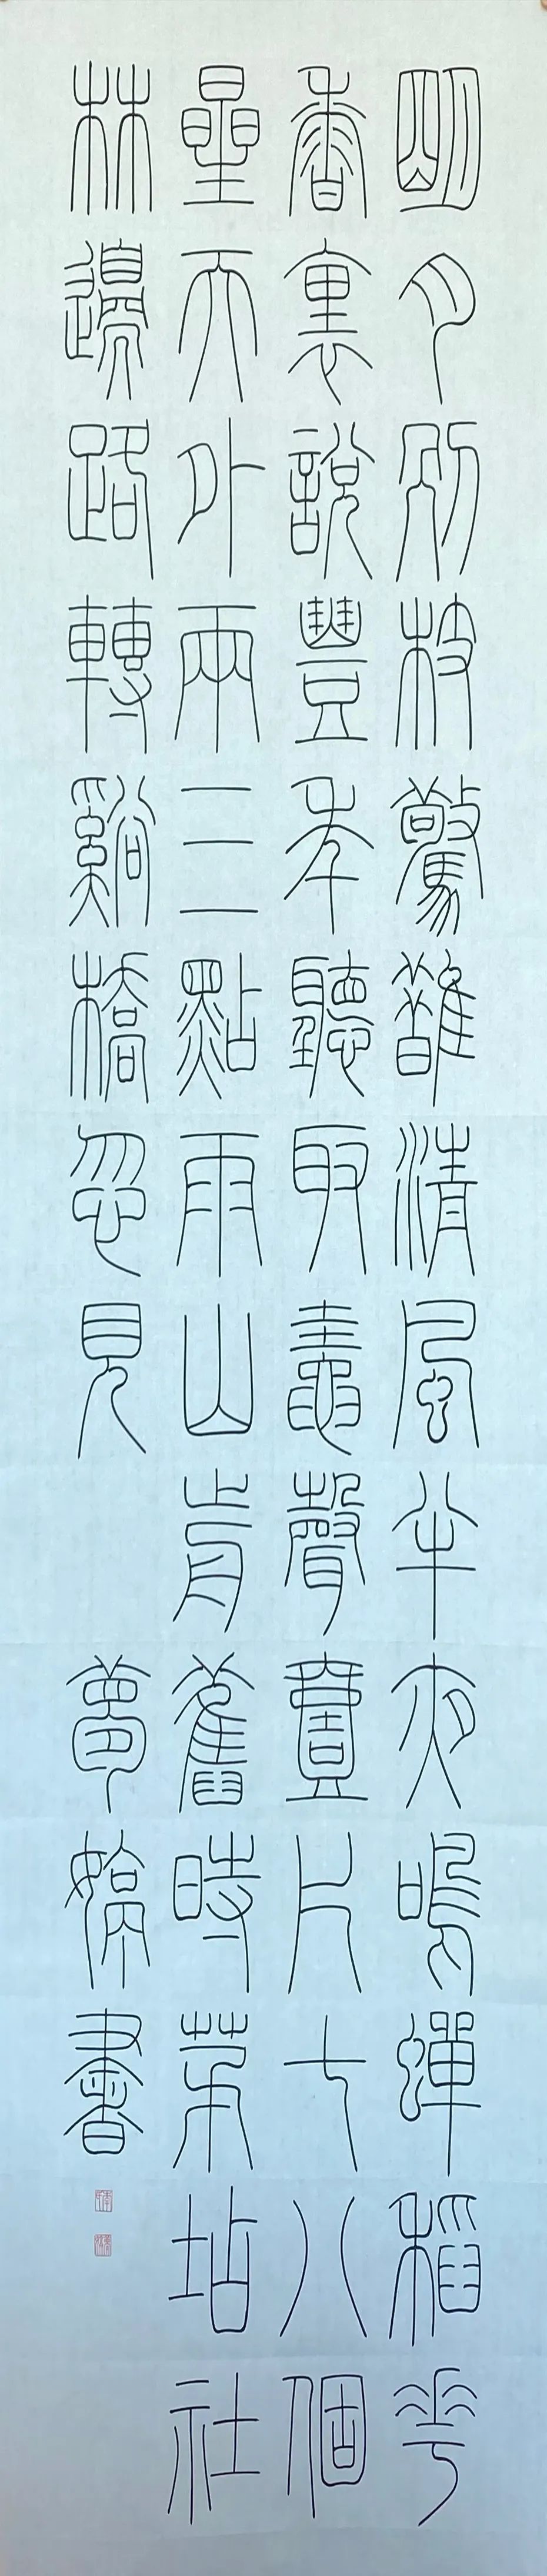 明月別枝驚鵲清風半夜鳴蟬稻花
香裏說豐年聽取蛙聲壹片七八個
星天外兩三點雨山前舊時茅坫社
林邊路轉谿橋忽見 夢婷書